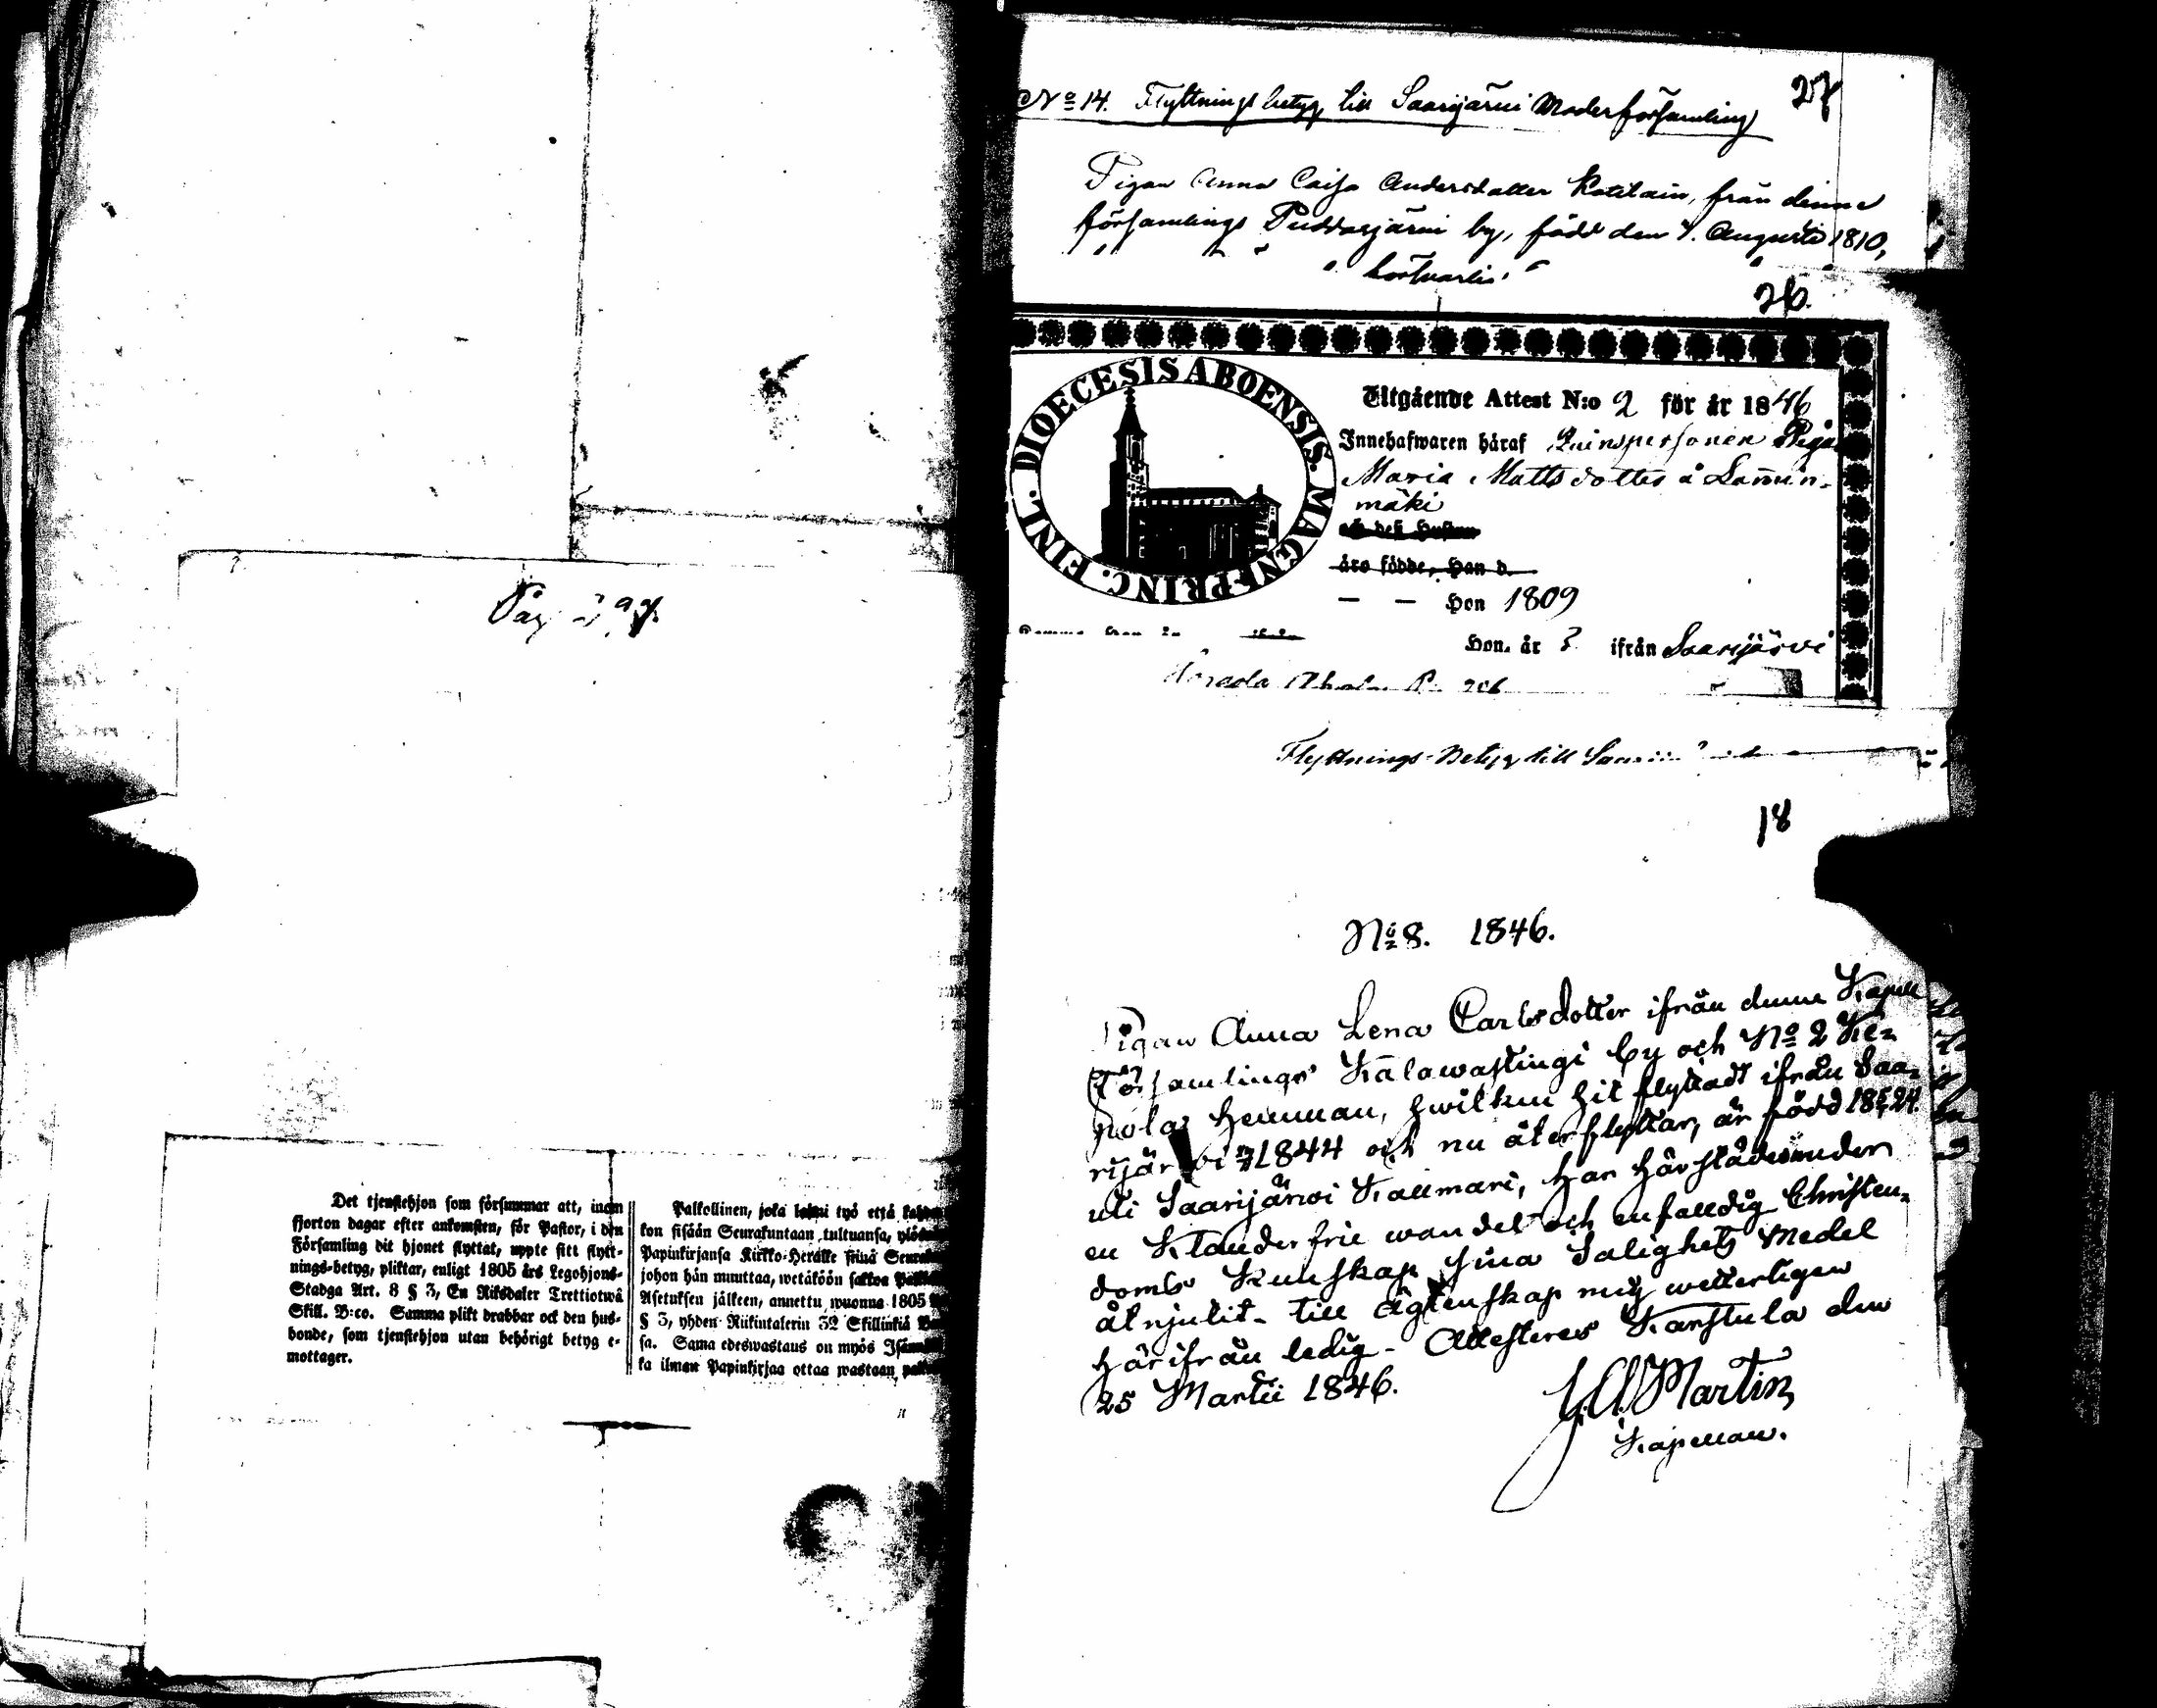 Pag 297.
Det tjenstehjon som försummar att, inom
fjorton dagar efter ankomsten, för Pastor, i den
Församling dit hjonet flyttat, uppte sitt flytt-
nings-betyg, pliktar, enligt 1805 års Legohjons-
Stadga Art. 8 § 3, En Riksdaler Trettiotwå
Skill. B:co. Samma plikt drabbar ock den hus-
bonde, som tjenstehjon utan behörigt betyg e-
mottager.
Palkollinen, joka että
kon sisään Seurakuntaan tultuansa,
Papinkirjansa Kirkko-Herälle siinä
johon hän muuttaa, wetäköön sakkoa
Asetuksen jälkeen, annettu wuonna 1805
§ 3, yhden Riikintalerin 32 Skillinkiä
sa. Sama edeswastaus on myös
ka ilman Papinkirjaa ottaa wastaan
27
No 14. Flyttningsbetyg till Saarijärvi Moderförsamling
Pigan Anna Caisa Andersdotter Kotilain, från denna
församlings Puddasjärvi by, född den 4. Augusti 1810,
26.
DIOECESIS ABOENSIS. MAGNI PRINC. FINL.
Utgående Attest N:o 2 för år 1846
Innehafwaren häraf Pigan
Maria Mattsdotter å Lamin-
mäki
äro födde, Han d.
— — Hon 1809
Hon. år 3 ifrån Saarijärvi
Flyttnings-Betyg till
18
No 8. 1846.
Pigan Anna Lena Carlsdotter ifrån denna Kapell
Församlings Kalawastingi by och No 2 Ke-
nola Hemman, hwilken hit flyttadt ifrån Saa-
rijärwi 1844 och nu återflyttar, är född
uti Saarijärwi Kallmari, har härstädes under
en Klanderfrie wandel och enfaldig Christen-
doms Kunskap sina Salighets Medel
åtnjutit - till Ägtenskap mig wetterligen
härifrån ledig - Attesteres Karstula den
25 Martii 1846.
Martin
Kapellan.